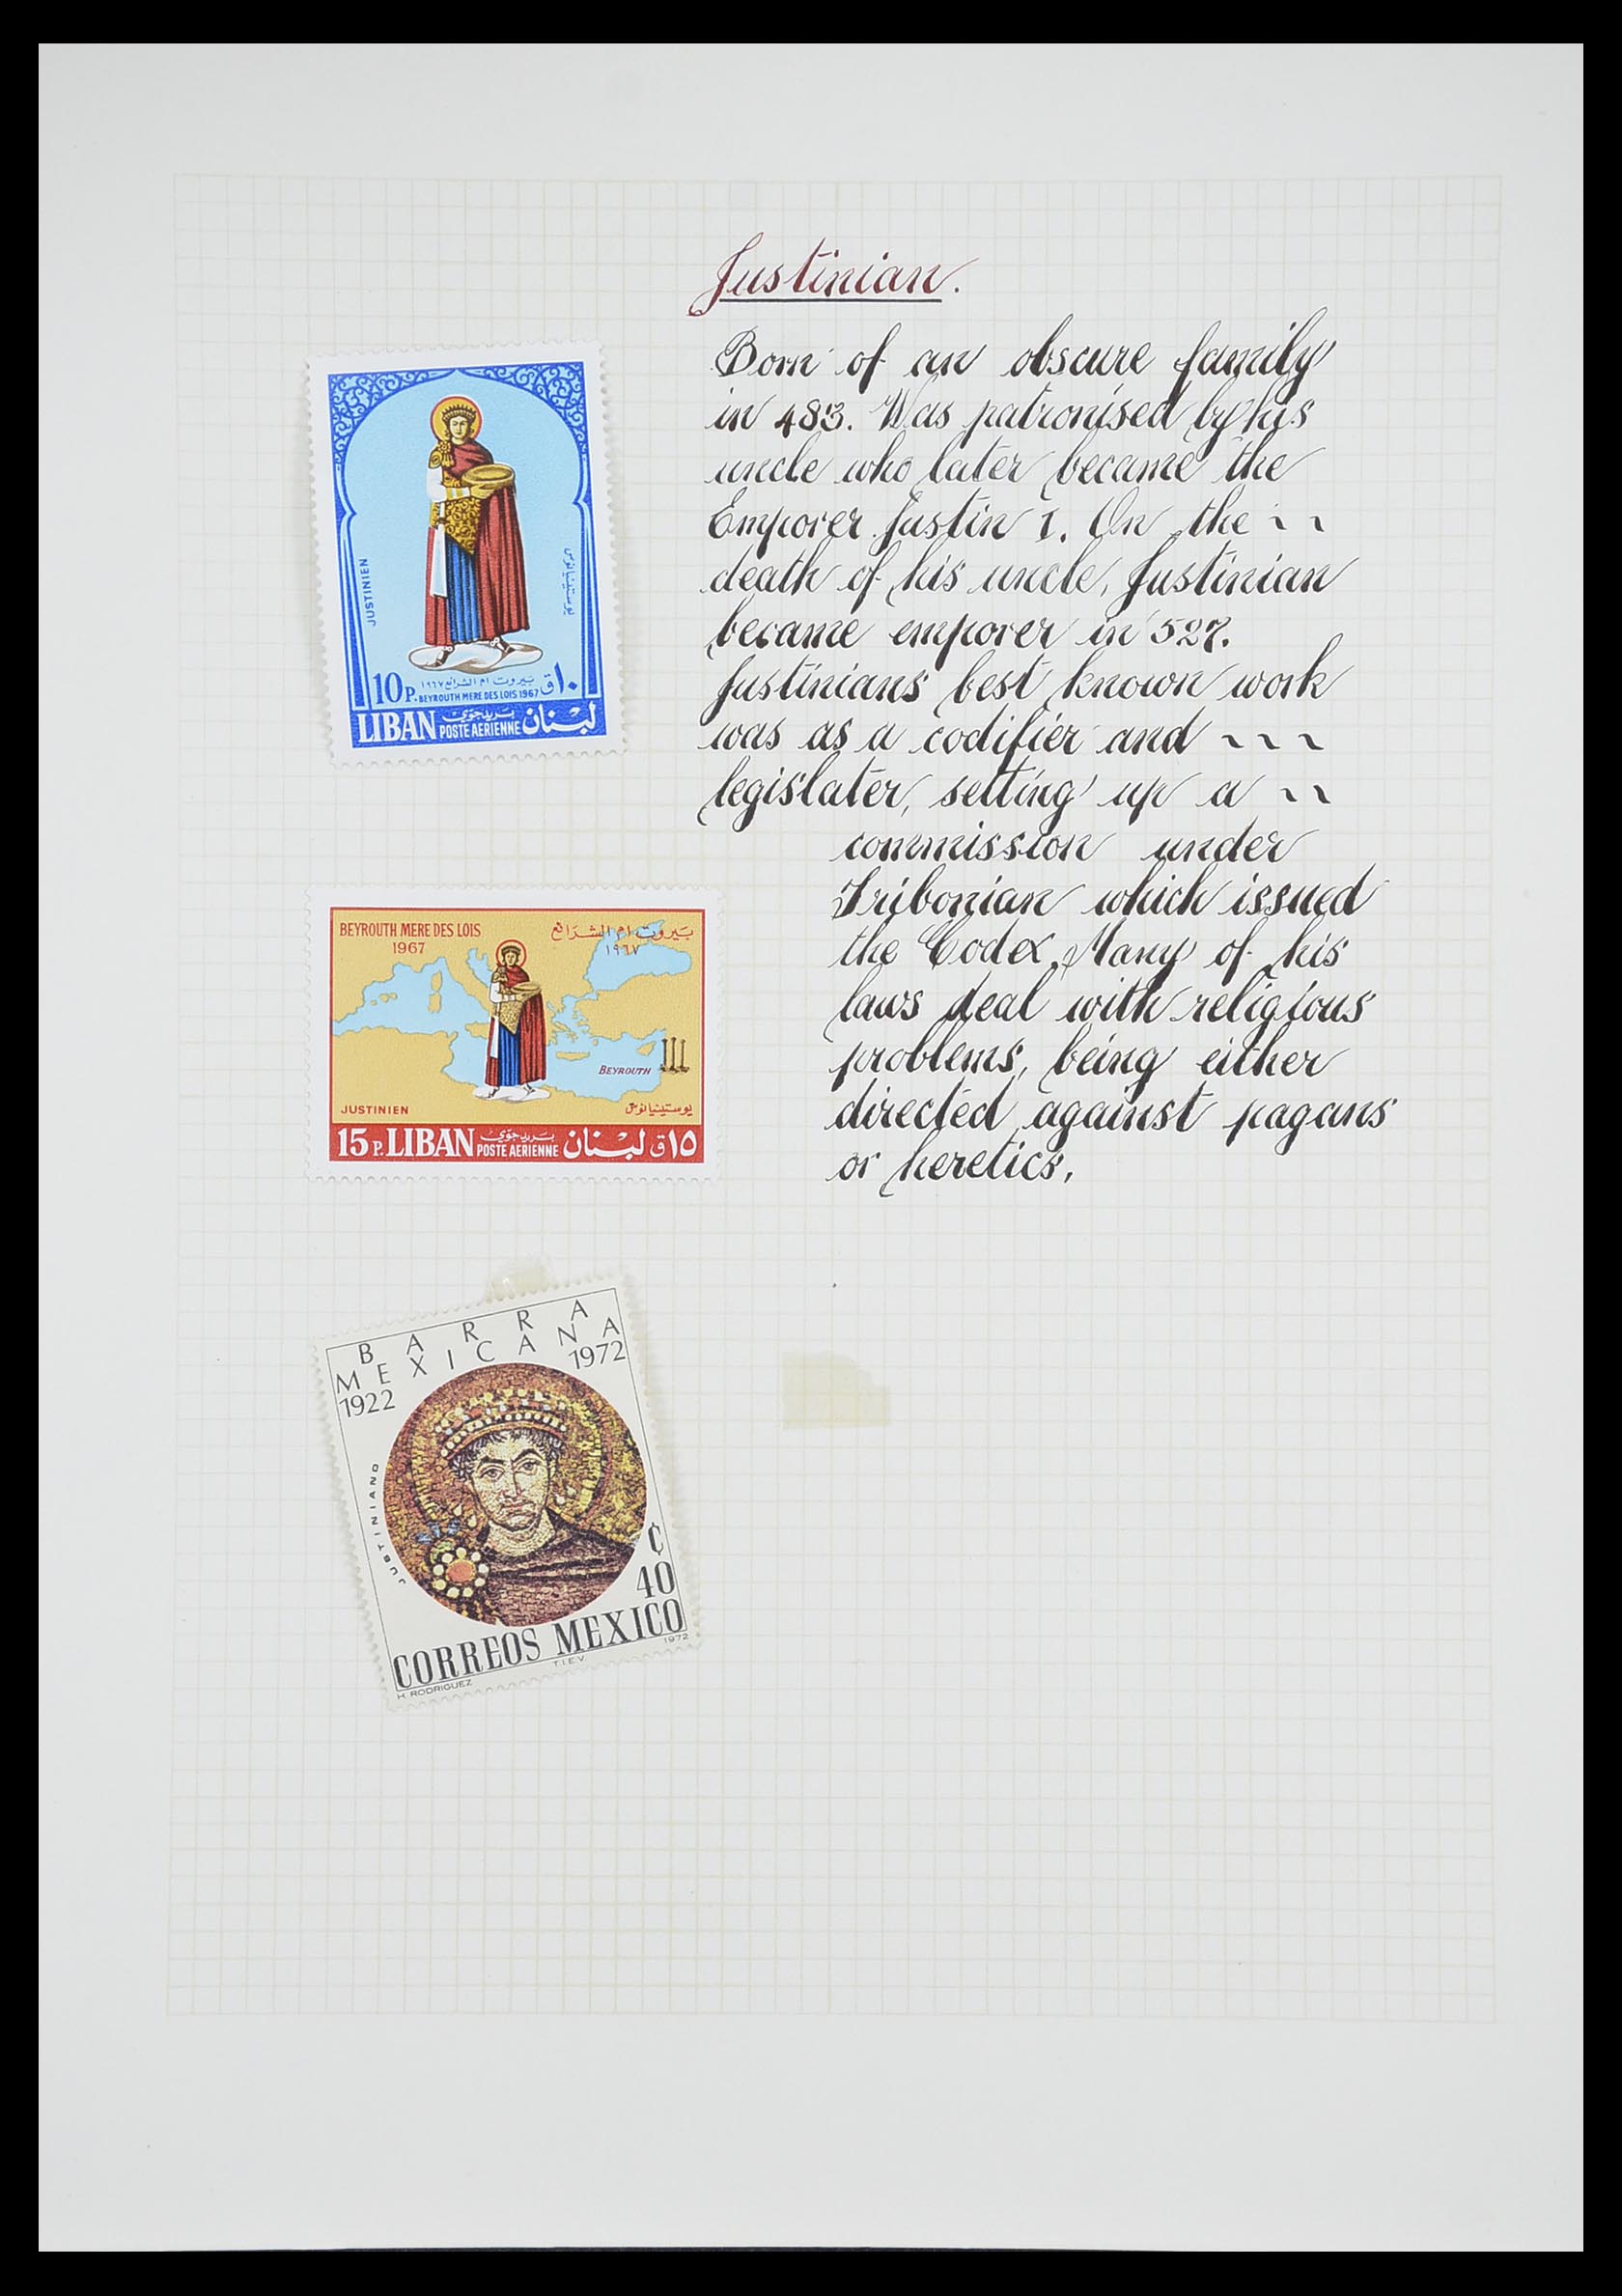 Justinian.
Born of an obscure family
in 483. Was patronised by his
uncle who later became the
Emporer Justin I. On the ~ ~
death of his uncle, Justinian
became emporer in 527.
Justinians best known work
was as a codifier and ~ ~ ~
legislater, setting up a ~ ~
commission under
Tribonian which issued
the Codex. Many of his
laws deal with religious
problems, being either
directed against pagans
or heretics.
JUSTINIEN
يوستينيانوس
بيروت ام الشرائع ١٩٦٧
10P. BEYROUTH MERE DES LOIS 1967 ١٠ق
LIBAN بريد جوي POSTE AERIENNE لبنان
BEYROUTH MERE DES LOIS
1967
بيروت ام الشرائع
١٩٦٧
BEYROUTH
JUSTINIEN
يوستينيانوس
15P. LIBAN بريد جوي POSTE AERIENNE لبنان ١٥ق
BARRA
MEXICANA
1922 1972
JUSTINIANO
¢
40
CORREOS MEXICO
H. RODRIGUEZ T.I.E.V. 1972